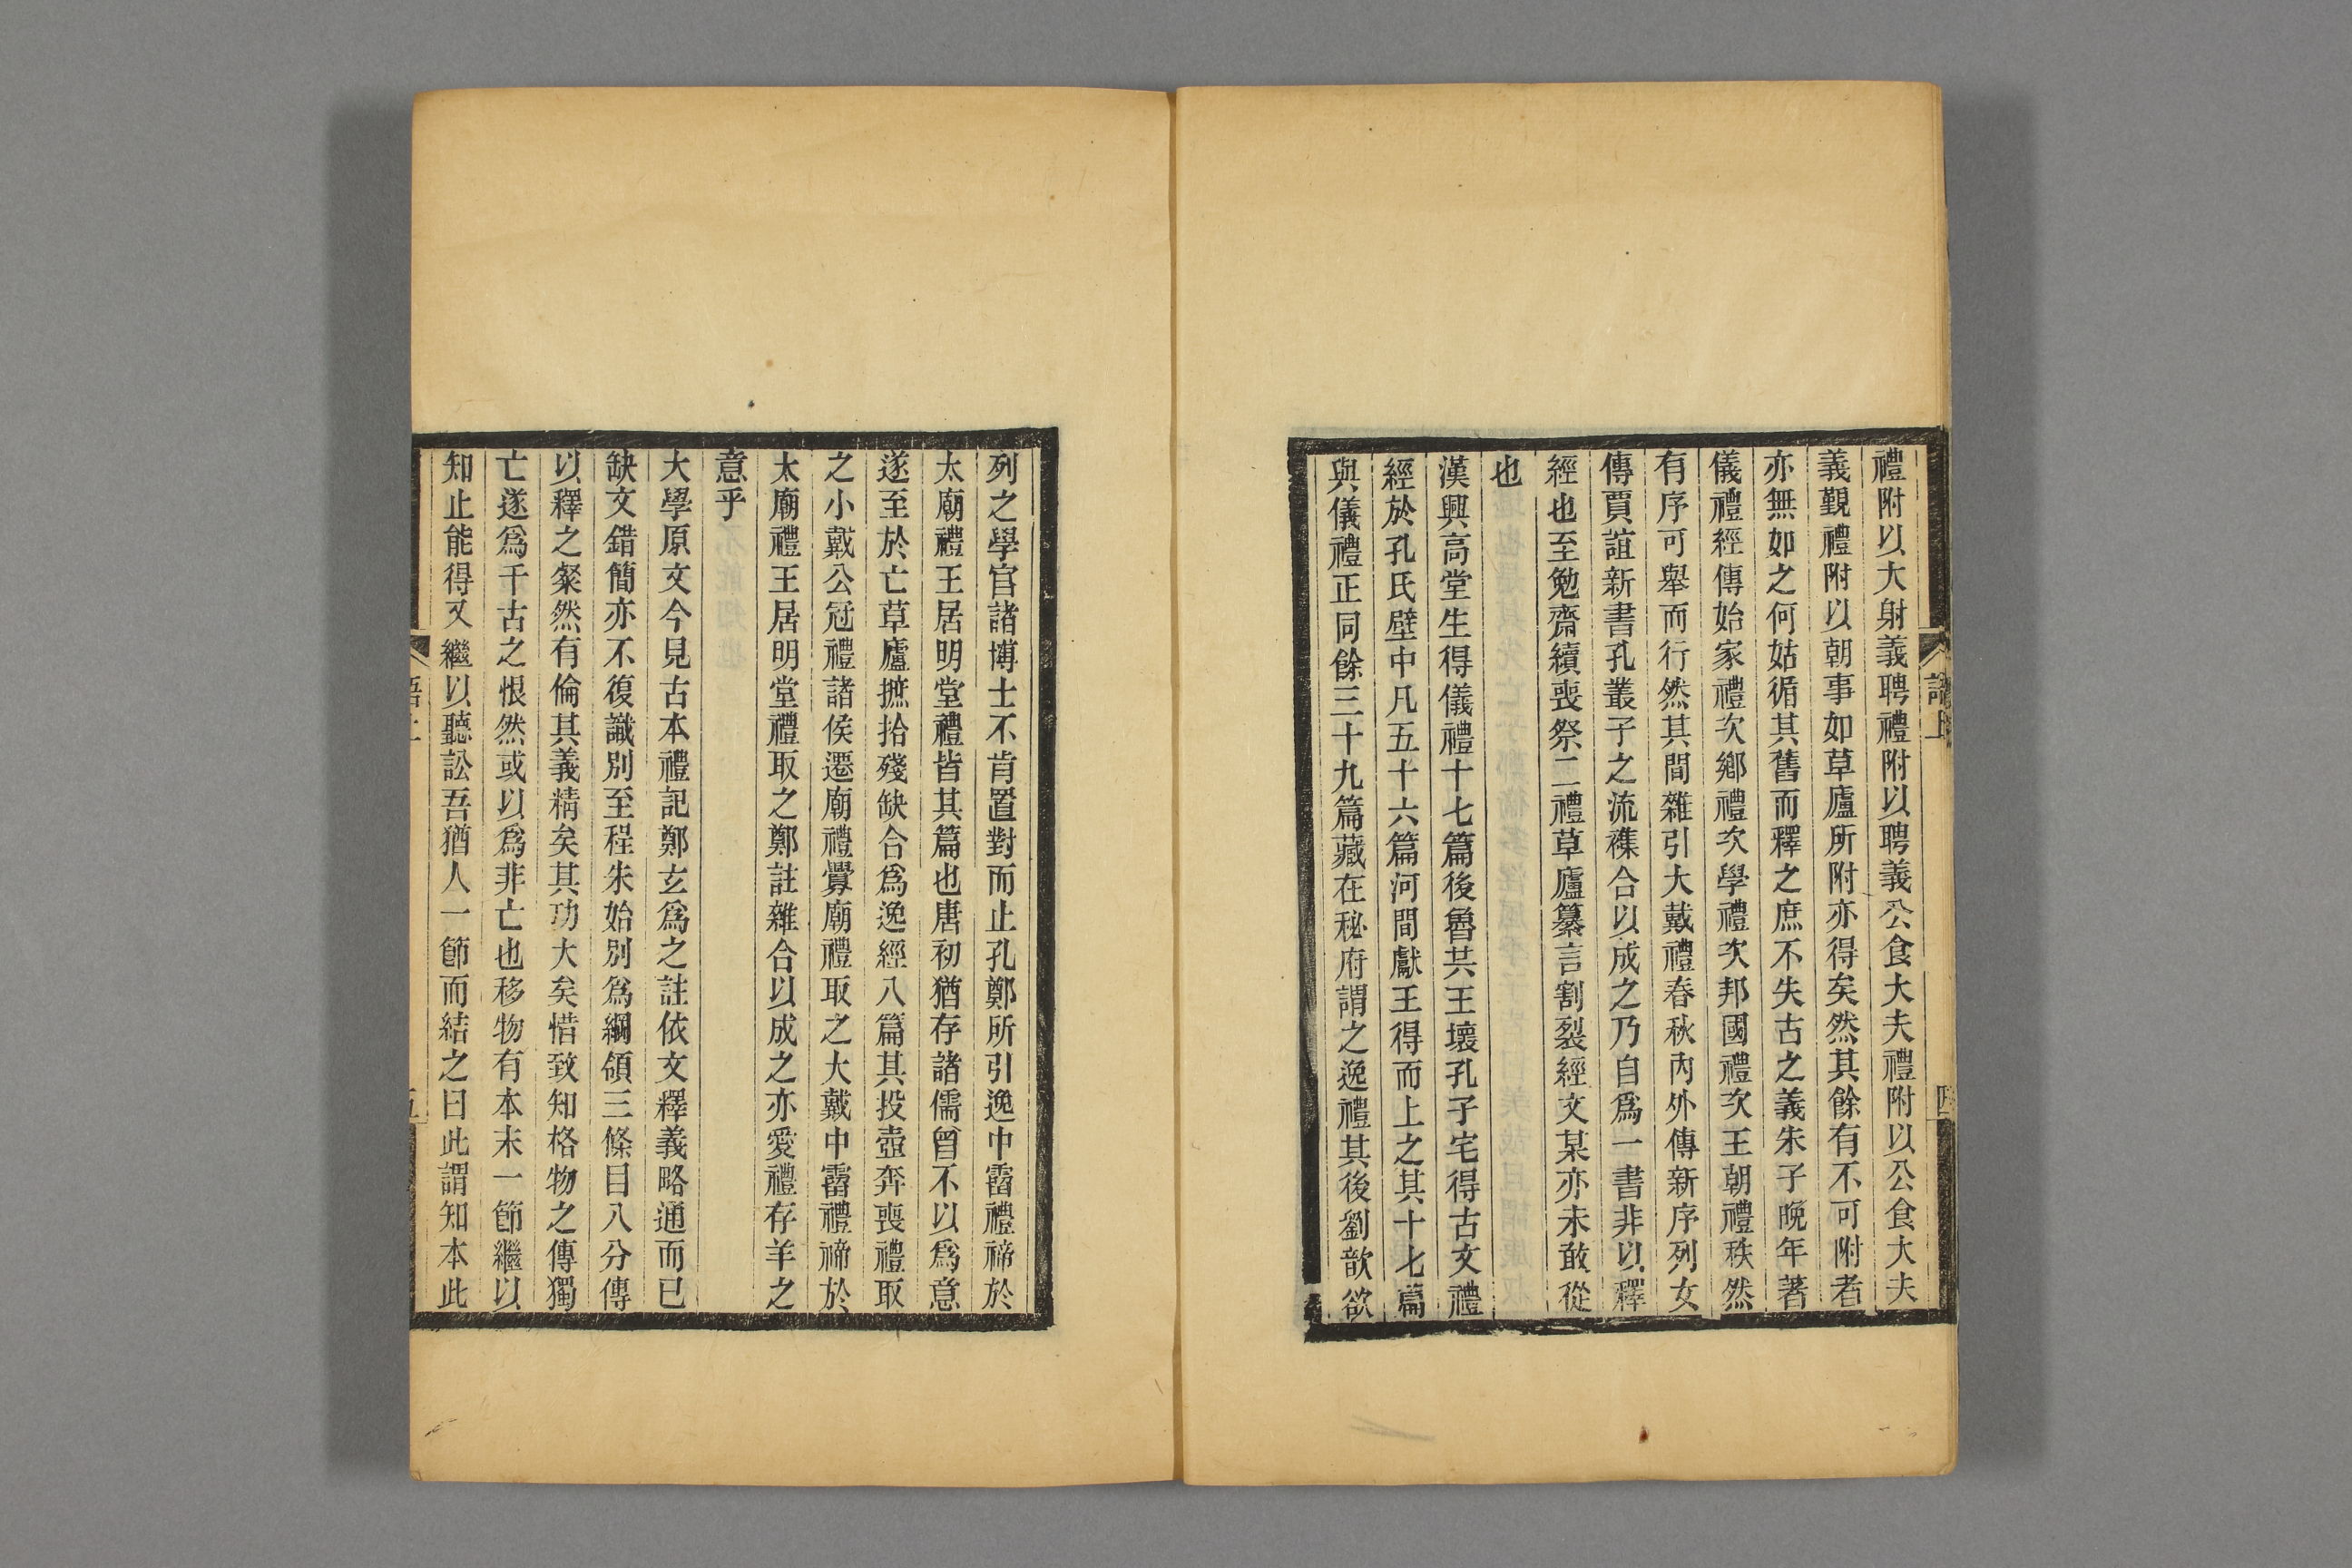 禮附以大射義聘禮附以聘義公食大夫禮附以公食大夫
義覲禮附以朝事如草廬所附亦得矣然其餘有不可附者
亦無如之何姑循其舊而釋之庶不失古之義朱子晚年著
儀禮經傳始家禮次鄉禮次學禮次邦國禮次王朝禮秩然
有序可舉而行然其間雜引大戴禮春秋內外傳新序列女
傳賈誼新書孔叢子之流襍合以成之乃自爲一書非以釋
經也至勉齋續喪祭二禮草廬纂言割裂經文某亦未敢從
也
漢興高堂生得儀禮十七篇後魯共王壞孔子宅得古文禮
經於孔氏壁中凡五十六篇河間獻王得而上之其十七篇
與儀禮正同餘三十九篇藏在秘府謂之逸禮其後劉歆欲
列之學官諸博士不肯置對而止孔鄭所引逸中霤禮禘於
太廟禮王居明堂禮皆其篇也唐初猶存諸儒曾不以爲意
遂至於亡草廬摭拾殘缺合爲逸經八篇其投壺奔喪禮取
之小戴公冠禮諸侯遷廟禮釁廟禮取之大戴中霤禮禘於
太廟禮王居明堂禮取之鄭註雜合以成之亦愛禮存羊之
意乎
大學原文今見古本禮記鄭玄爲之註依文釋義略通而已
缺文錯簡亦不復識別至程朱始別爲綱領三條目八分傳
以釋之粲然有倫其義精矣其功大矣惜致知格物之傳獨
亡遂爲千古之恨然或以爲非亡也移物有本末一節繼以
知止能得又繼以聽訟吾猶人一節而結之曰此謂知本此